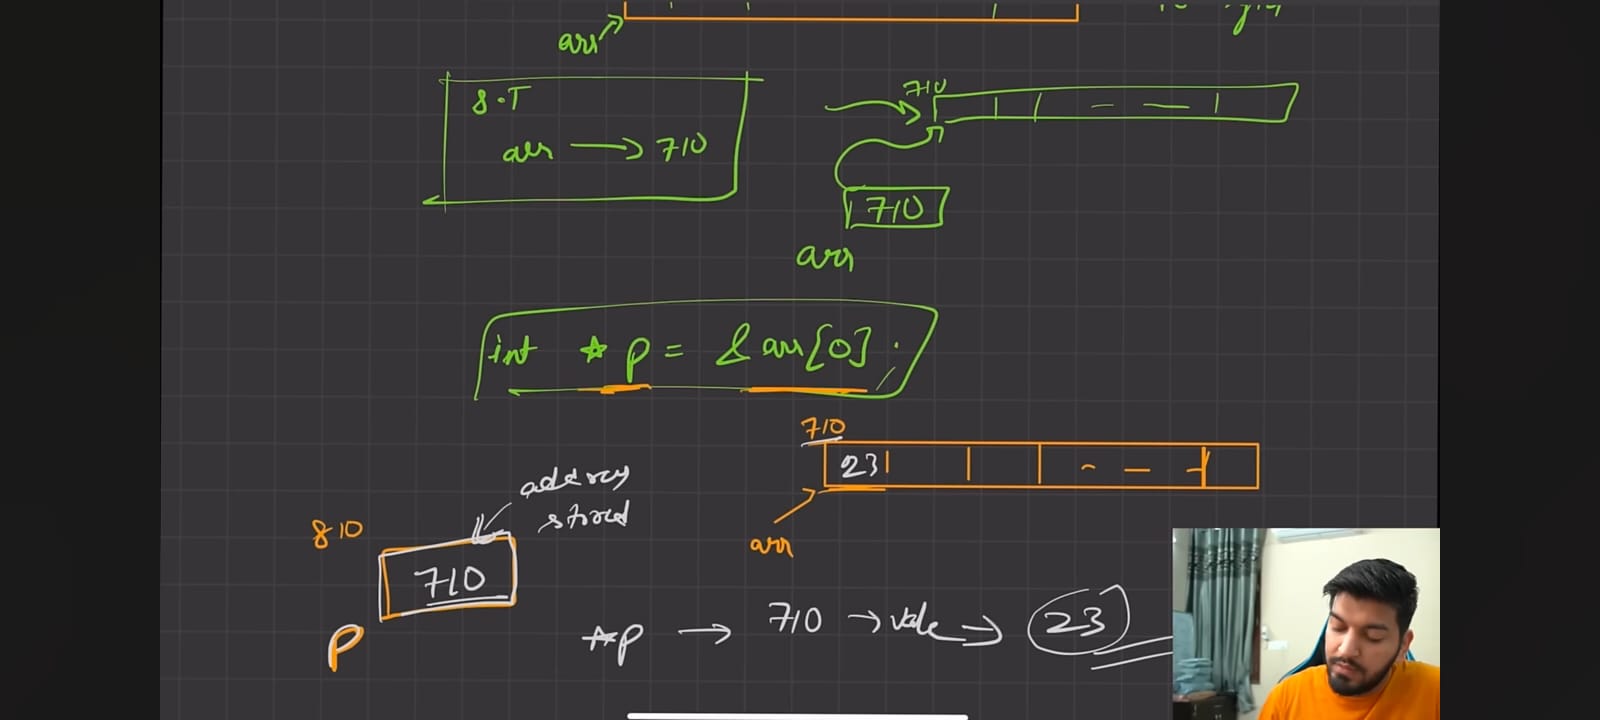 arr
S.T
arr → 710
710
710
arr
int * p = &arr[0];
710
23
arr
address
stored
810
710
p
*p → 710 → value → 23